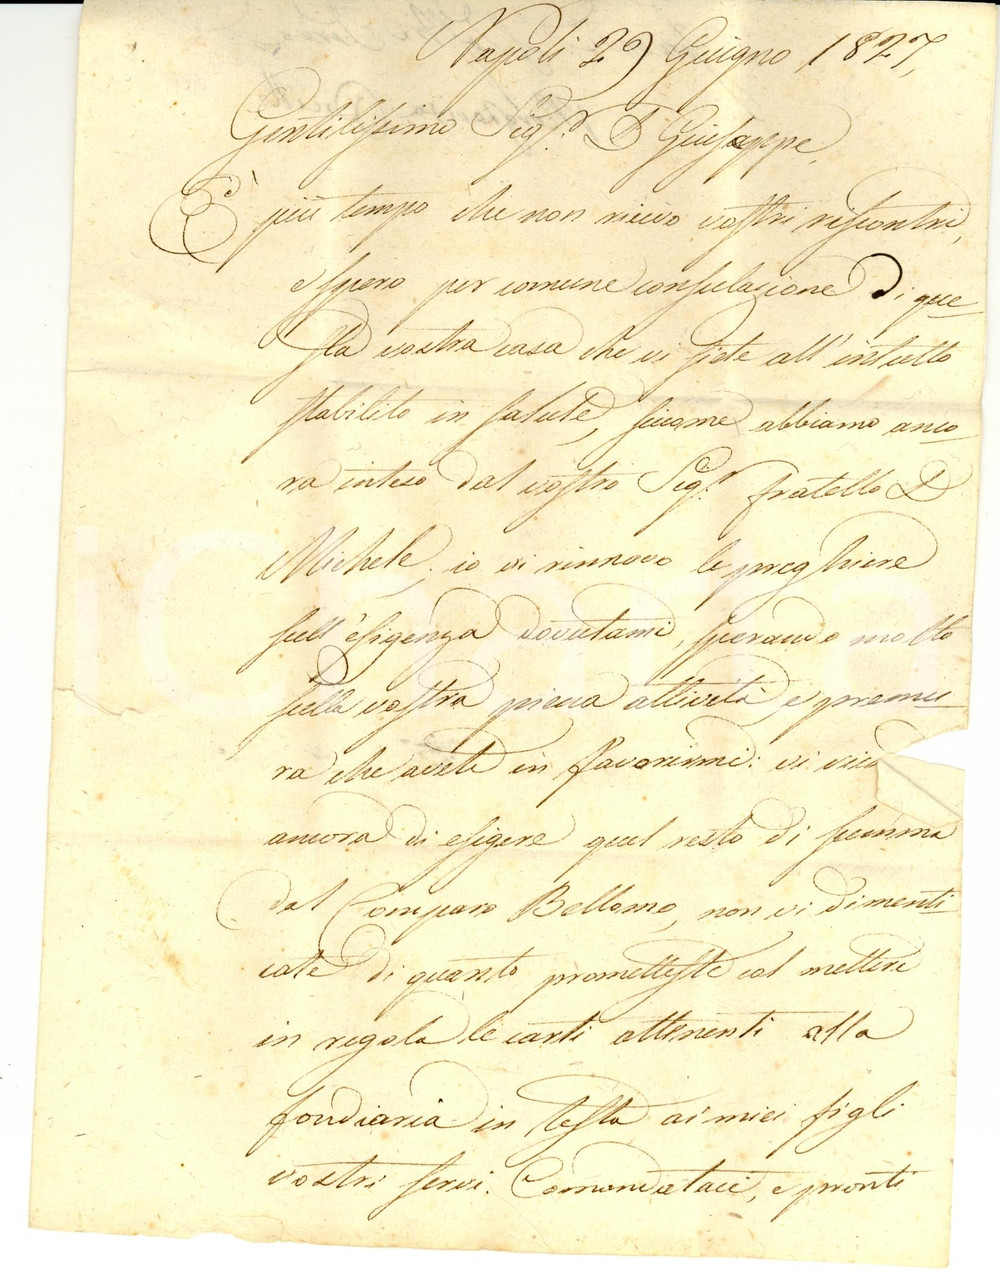 Napoli 29 Giugno 1827,
Gentilissimo Sig.r D Giuseppe,
E' più tempo che non ricevo vostri riscontri,
e spero per comune consulazione di que
sta vostra casa che vi siete all'intutto
stabilito in salute, siccome abbiamo anco
ra inteso dal vostro Sig.r fratello D
Michele, io vi rinnovo le preghiere
sull'esigenza dovutami, sperando molto
sulla vostra piena attività, e premu
ra che avete in favorirmi: vi
ancora di esigere quel resto di summa
dal Compare Bellomo, non vi dimenti
cate di quanto prometteste col mettere
in regola le carti attinenti alla
fondiaria in testa ai miei figli
vostri servi. Comandataci, e pronti